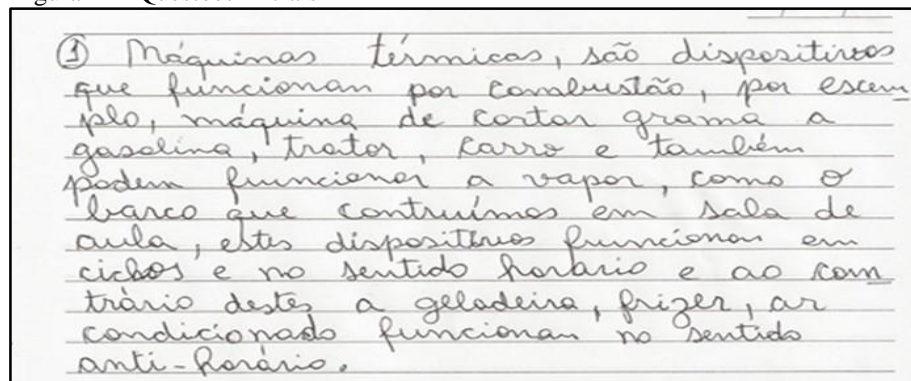 ① Máquinas térmicas, são dispositivos
que funcionan por combustão, por escem
plo, máquina de cortar grama a
gasolina, trator, carro e também
podem funcionar a vapor, como o
barco que contruímos em sala de
aula, estes dispositivos funcionan em
ciclos e no sentido horário e ao com
trário destes a geladeira, frizer, ar
condicionado funcionan no sentido
anti-horário.